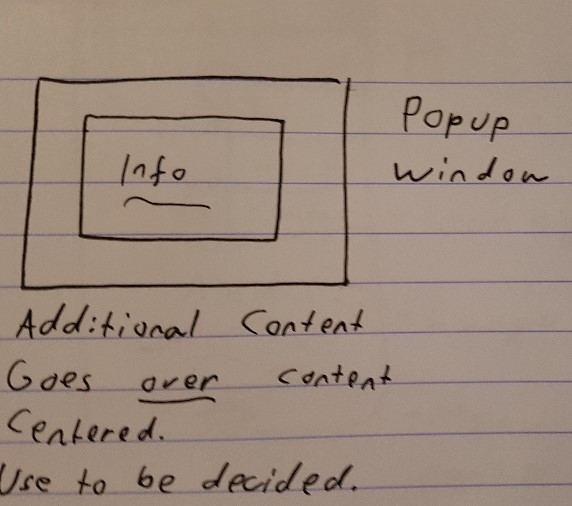 Info
Popup
Window
Additional Content
Goes over content
Centered.
Use to be decided.